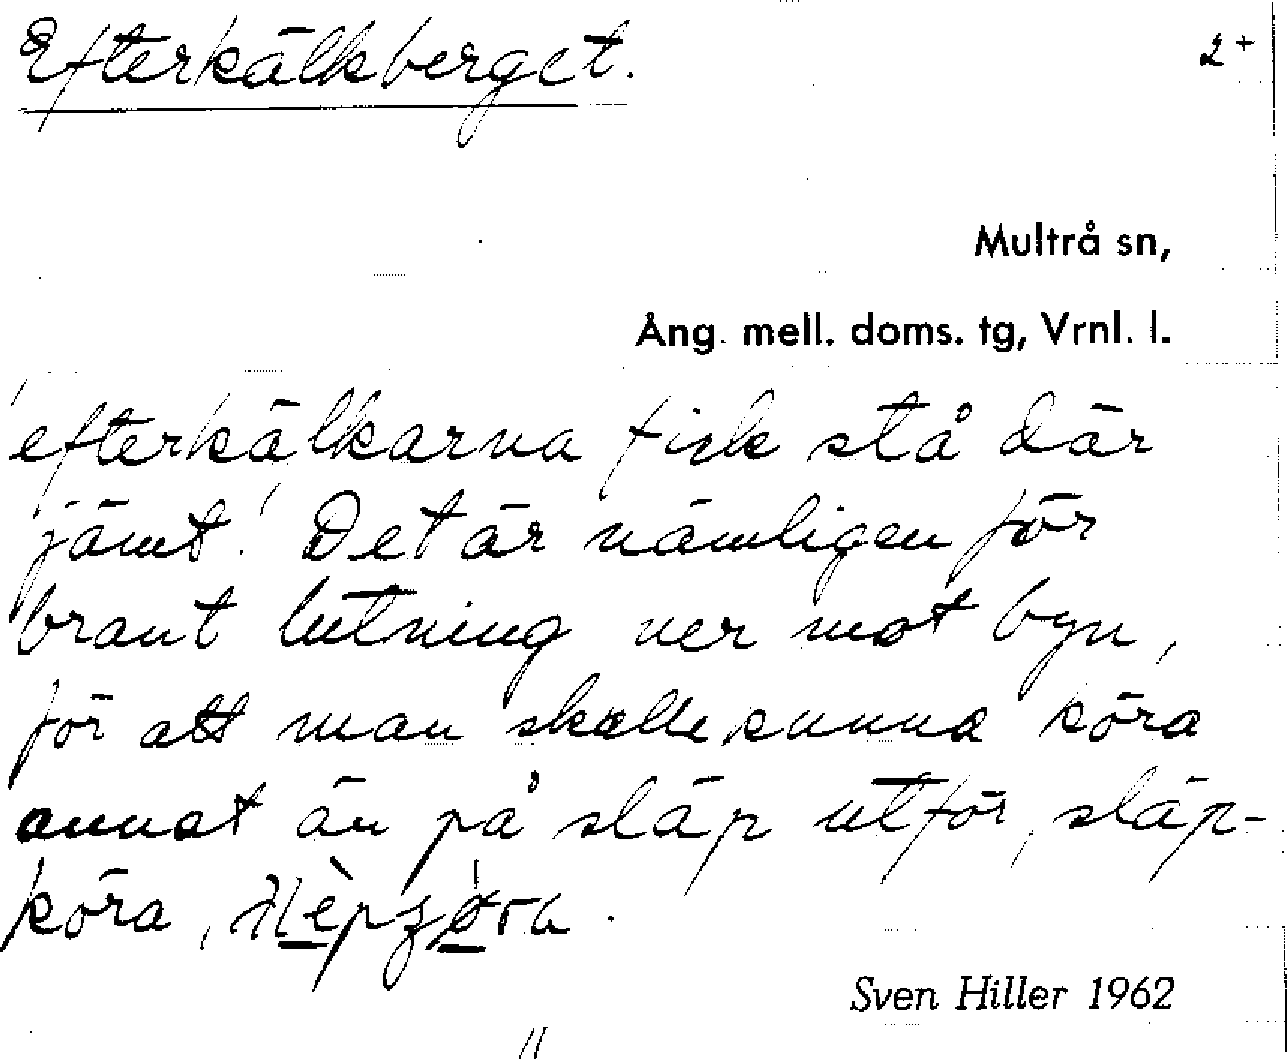 Efterkälkberget. 2+
Multrå sn,
Ång. mell. doms. tg, Vrnl. l.
'efterkälkarna fick stå där
jämt.' Det är nämligen för
brant lutning ner mot byn,
för att man skulle kunna köra
annat än på släp utför, släp-
köra,
Sven Hiller 1962